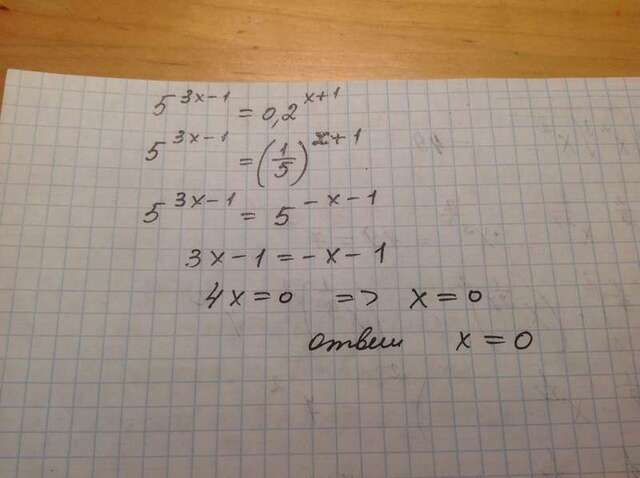 5^{3x-1} = 0,2^{x+1}
5^{3x-1} = (1/5)^{x+1}
5^{3x-1} = 5^{-x-1}
3x-1=-x-1
4x=0 => x=0
ответ x=0